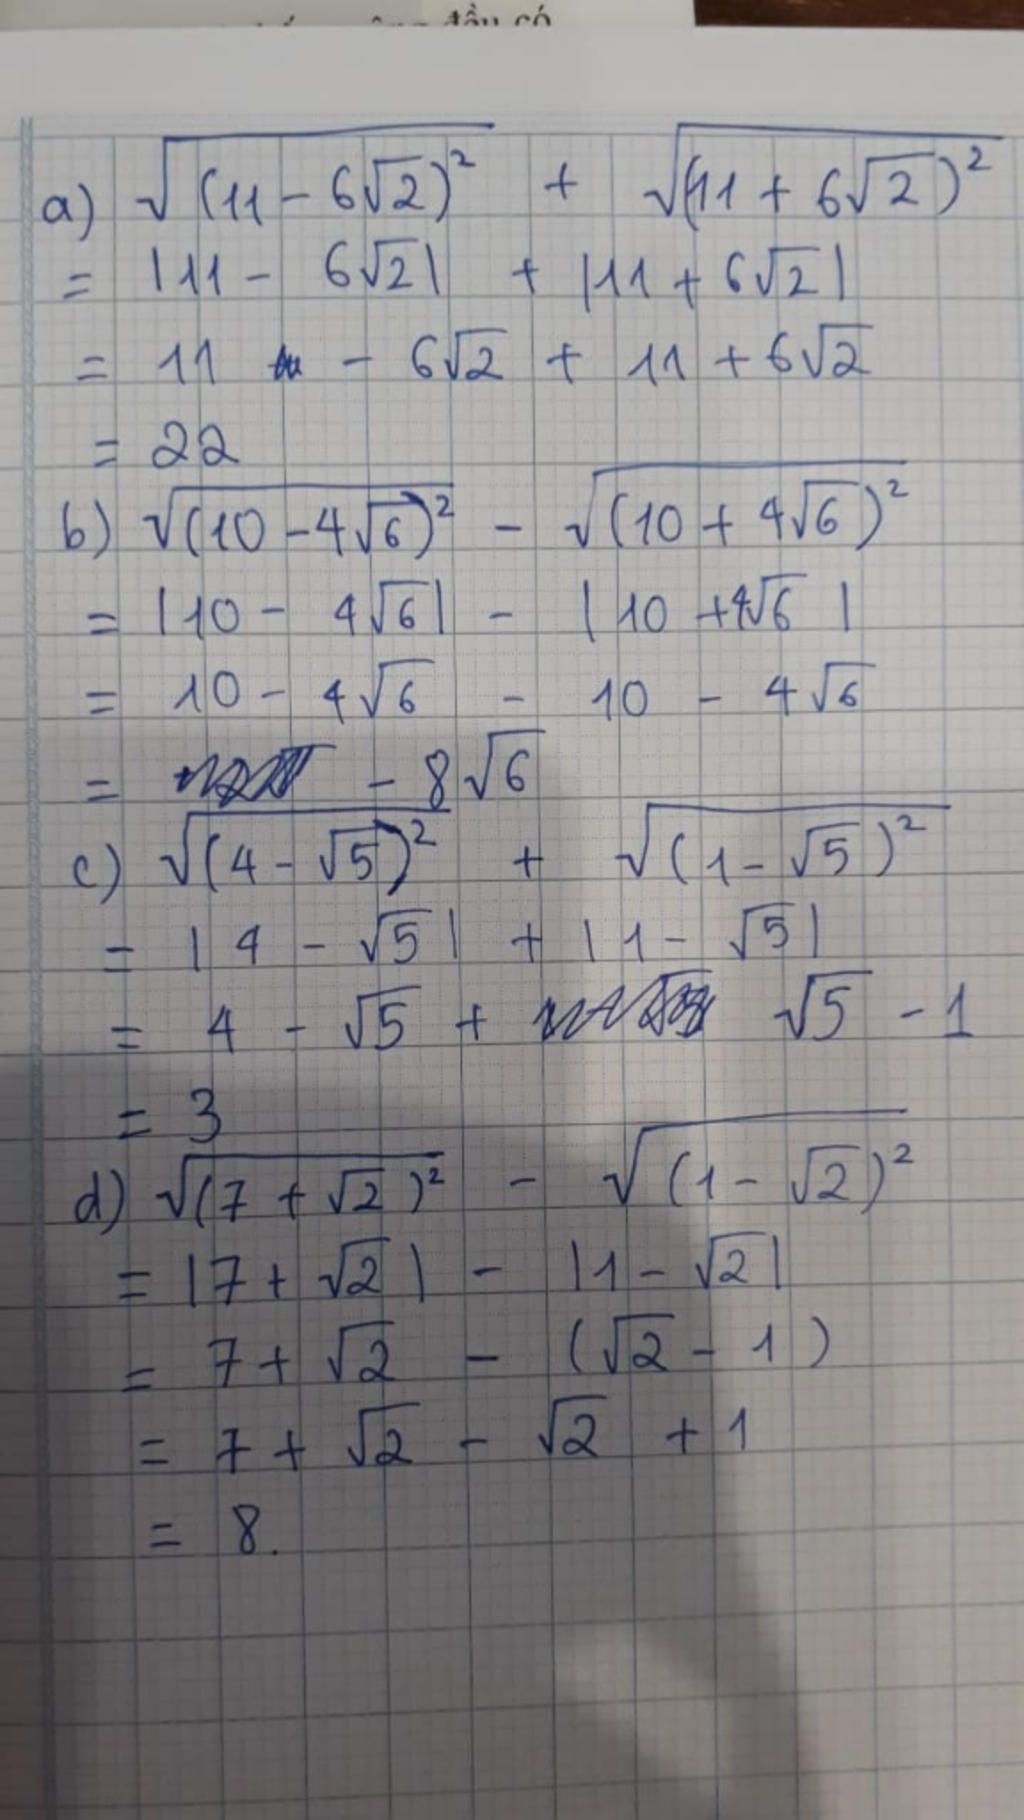 đầu có
a) √(11 - 6√2)² + √(11 + 6√2)²
= |11 - 6√2| + |11 + 6√2|
= 11 - 6√2 + 11 + 6√2
= 22
b) √(10 - 4√6)² - √(10 + 4√6)²
= |10 - 4√6| - |10 + 4√6|
= 10 - 4√6 - 10 - 4√6
= - 8√6
c) √(4 - √5)² + √(1 - √5)²
= |4 - √5| + |1 - √5|
= 4 - √5 + √5 - 1
= 3
d) √(7 + √2)² - √(1 - √2)²
= |7 + √2| - |1 - √2|
= 7 + √2 - (√2 - 1)
= 7 + √2 - √2 + 1
= 8.